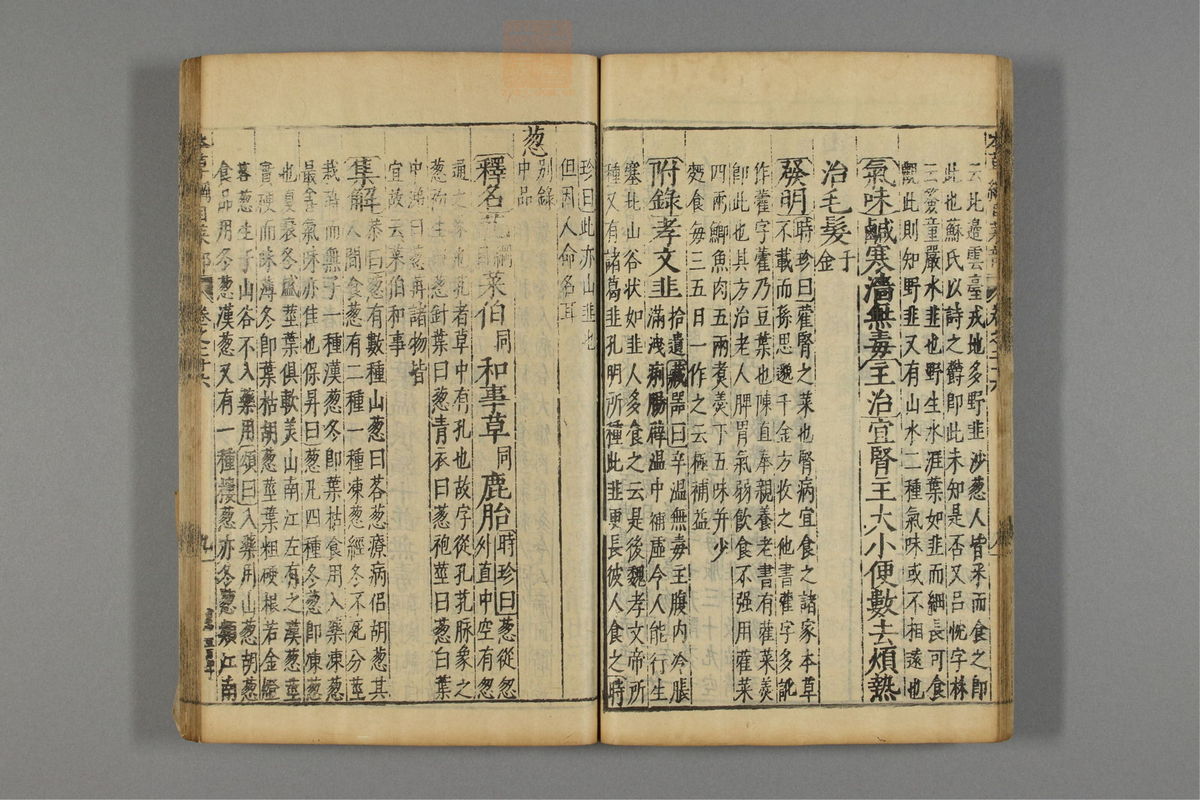 云北邊雲臺戎地多野韭沙葱人皆采而食之即
此也蘇氏以詩之爵即此未知是否又呂忱字林
云䪥童嚴水韭也野生水涯葉如韭而細長可食
觀此則知野韭又有山水二種氣味或不相遠也
氣味鹹寒濇無毒主治宜腎主大小便數去煩熱
治毛髮千金
發明時珍曰藿腎之菜也腎病宜食之諸家本草
不載而孫思邈千金方收之他書藿字多訛
作藿字藿乃豆葉也陳直奉親養老書有藿菜羮
即此也其方治老人脾胃氣弱飲食不强用藿菜
四兩鯽魚肉五兩煮羮下五味并少
麪食每三五日一作之云極補益
附錄孝文韭拾遺藏器曰辛溫無毒主腹內冷脹
滿洩痢腸澼溫中補虛令人能行生
塞北山谷狀如韭人多食之云是後魏孝文帝所
種又有諸葛韭孔明所種此韭更長彼人食之時
珍曰此亦山韭也
但因人命名耳
葱
別錄
中品
釋名芤綱目菜伯同和事草同鹿胎時珍曰葱從怱
外直中空有怱
通之象也芤者草中有孔也故字從孔芤脉象之
葱初生曰葱針葉曰葱青衣曰葱袍莖曰葱白葉
中涕曰葱苒諸物皆
宜故云菜伯和事
集解恭曰葱有數種山葱曰茖葱療病侣胡葱其
人間食葱有二種一種凍葱經冬不死分莖
栽蒔而無子一種漢葱冬即葉枯食用入藥凍葱
最善氣味亦佳也保昇曰葱凡四種冬葱即凍葱
也夏衰冬盛莖葉俱軟美山南江左有之漢葱莖
實硬而味薄冬即葉枯胡葱莖葉粗硬根若金燈
茖葱生于山谷不入藥用頌曰入藥用山葱胡葱
食品用冬葱漢葱又有一種樓葱亦冬葱類江南